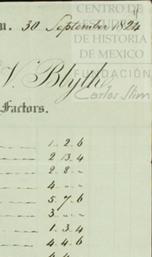 n. 30 September 1824
CENTRO DE
DE HISTORIA
DE MEXICO
V. Blyth
FUNDACIÓN
Carlos Slim
Factors.
1. 2. 6
2. 13. 4
2. 8. -
4. -
5. 7. 6
3. -
1. 3. 4
4. 4. 6